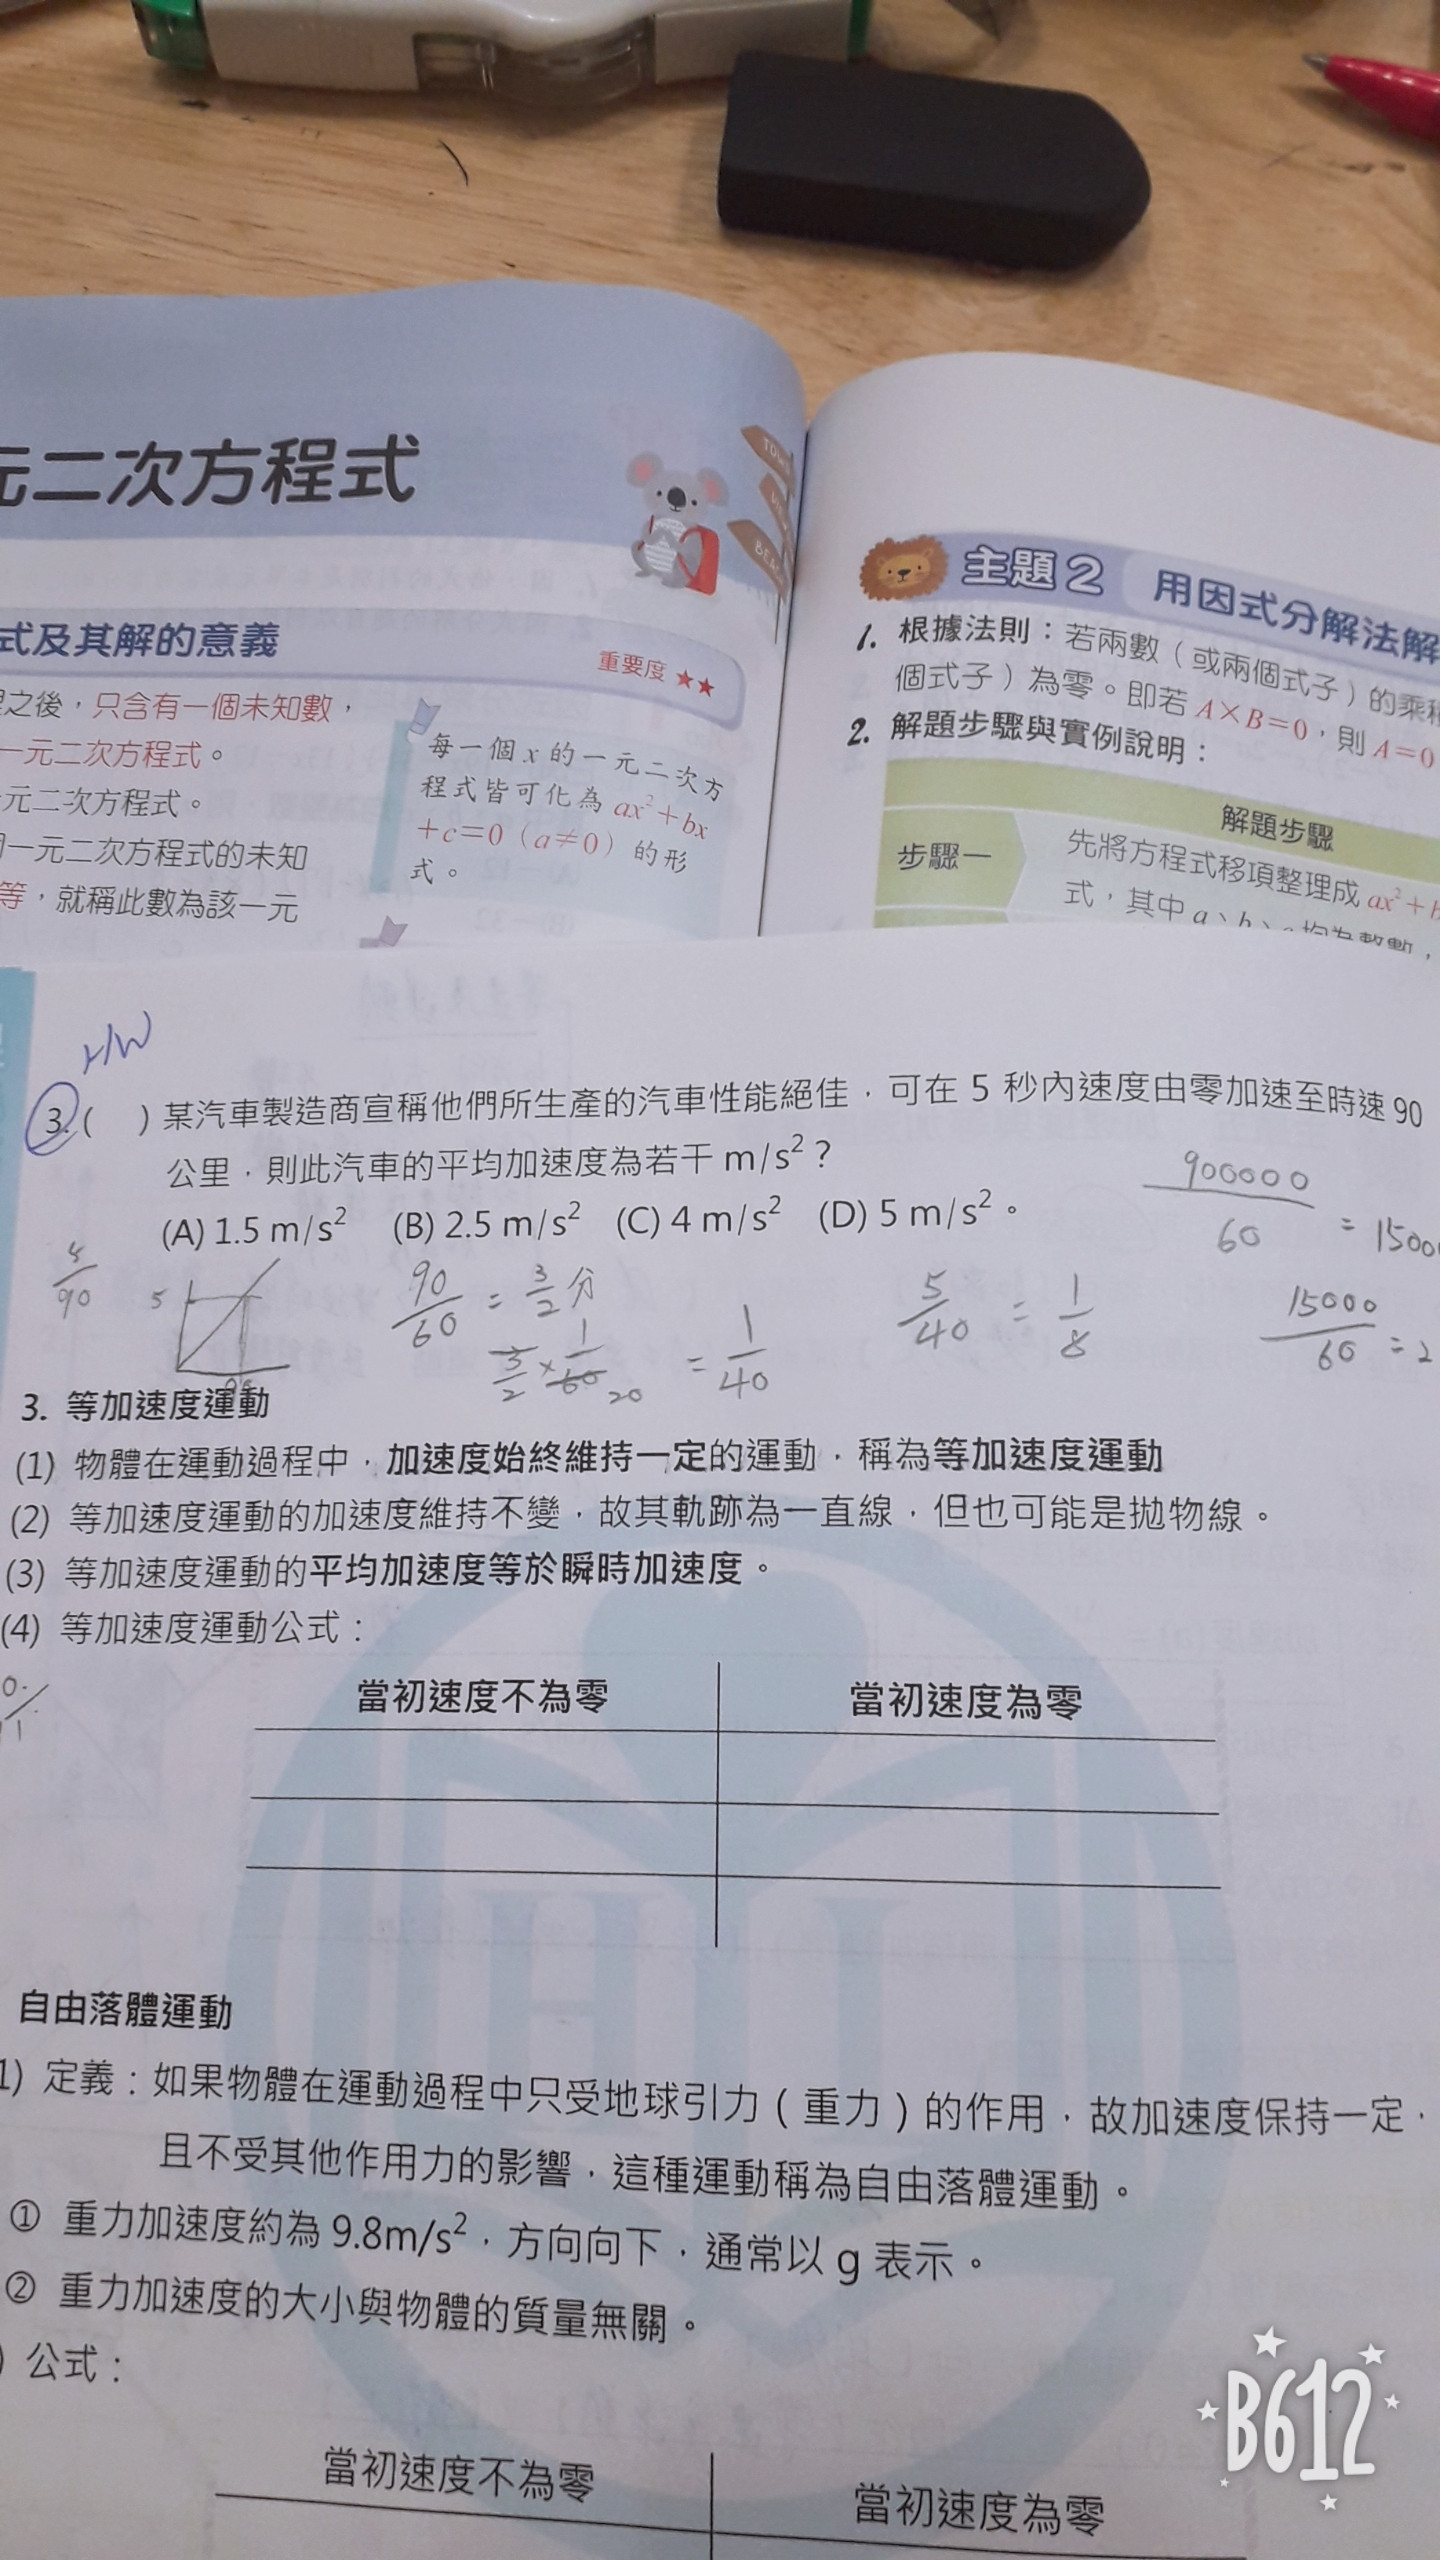 元二次方程式
式及其解的意義
重要度 ★★
之後，只含有一個未知數，
一元二次方程式。
元二次方程式。
一元二次方程式的未知
等，就稱此數為該一元
每一個 x 的一元二次方
程式皆可化為 ax²+bx
+c=0（a≠0）的形
式。
TOW
BEA
主題2 用因式分解法解
1. 根據法則：若兩數（或兩個式子）的乘積
個式子）為零。即若 A×B=0，則 A=0
2. 解題步驟與實例說明：
解題步驟
步驟一
先將方程式移項整理成 ax²+b
式，其中 a、b、c 均為整數，
HW
3. ( ) 某汽車製造商宣稱他們所生產的汽車性能絕佳，可在 5 秒內速度由零加速至時速 90
公里，則此汽車的平均加速度為若干 m/s²？
(A) 1.5 m/s² (B) 2.5 m/s² (C) 4 m/s² (D) 5 m/s²。
900000/60 = 1500
5
90/60 = 3/2 分
3/2 × 1/60 20 = 1/40
5/40 = 1/8
15000/60 = 2
3. 等加速度運動
(1) 物體在運動過程中，加速度始終維持一定的運動，稱為等加速度運動
(2) 等加速度運動的加速度維持不變，故其軌跡為一直線，但也可能是拋物線。
(3) 等加速度運動的平均加速度等於瞬時加速度。
(4) 等加速度運動公式：
當初速度不為零 當初速度為零
自由落體運動
1) 定義：如果物體在運動過程中只受地球引力（重力）的作用，故加速度保持一定，
且不受其他作用力的影響，這種運動稱為自由落體運動。
① 重力加速度約為 9.8m/s²，方向向下，通常以 g 表示。
② 重力加速度的大小與物體的質量無關。
) 公式：
當初速度不為零 當初速度為零
B612